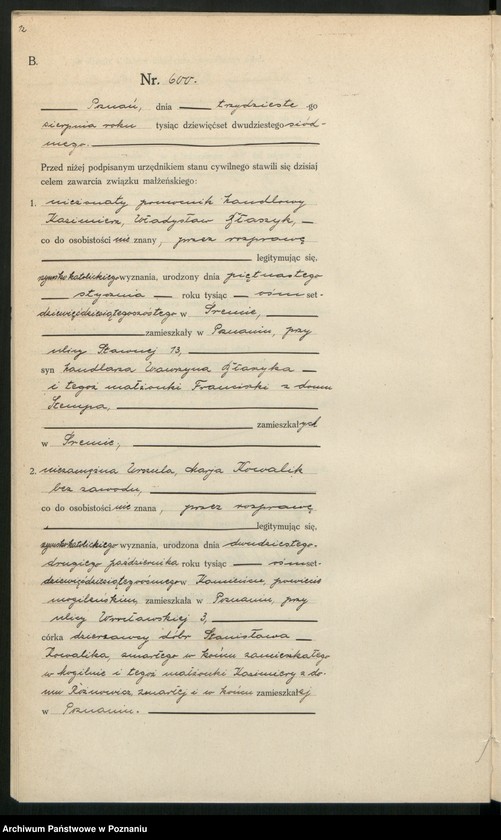 B.
Nr. 600.
Poznań, dnia trzydzieste go
sierpnia roku tysiąc dziewięćset dwudziestego siód-
mego.
Przed niżej podpisanym urzędnikiem stanu cywilnego stawili się dzisiaj
celem zawarcia związku małżeńskiego:
1. nieżonaty pomocnik handlowy
Kazimierz, Władysław
co do osobistości nie znany, przez rozprawę
legitymując się,
rzymsko katolickiego wyznania, urodzony dnia piętnastego
stycznia roku tysiąc ośm set-
dziewięćdziesiątego szóstego w Śremie,
zamieszkały w Poznaniu, przy
ulicy Stawnej 13,
syn handlarza Wawrzyna
i tegoż małżonki Franciszki z domu
Stempa,
zamieszkałych
w Śremie,
2. niezamężna Urszula, Marja Kowalik
bez zawodu,
co do osobistości nie znana, przez rozprawę
legitymując się,
rzymsko katolickiego wyznania, urodzona dnia dwudziestego-
drugiego października roku tysiąc ośm set-
dziewięćdziesiątego ósmego w powiecie
mogileńskim, zamieszkała w Poznaniu, przy
ulicy Wrocławskiej 3,
córka dzierżawcy dóbr Stanisława
Kowalika, zmarłego w końcu zamieszkałego
w Mogilnie i tegoż małżonki Kazimiery z do-
mu zmarłej i w końcu zamieszkałej
w Poznaniu.
Archiwum Państwowe w Poznaniu